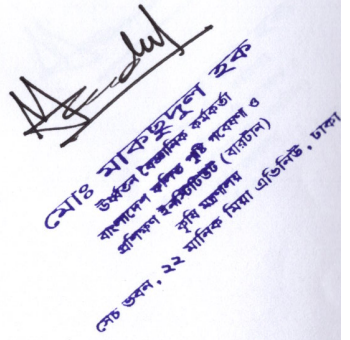 মোঃ মাকছুদুল হক
উর্ধ্বতন বৈজ্ঞানিক কর্মকর্তা
বাংলাদেশ ফলিত পুষ্টি গবেষণা ও
প্রশিক্ষণ ইনস্টিটিউট (বারটান)
কৃষি মন্ত্রণালয়
সেচ ভবন, ২২ মানিক মিয়া এভিনিউ, ঢাকা